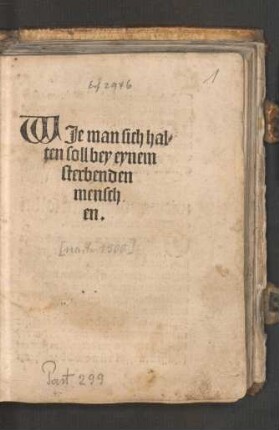 Ef 2946
1
WIe man sich hal-
ten soll bey eynem
sterbenden
mensch
en.
Past. 299